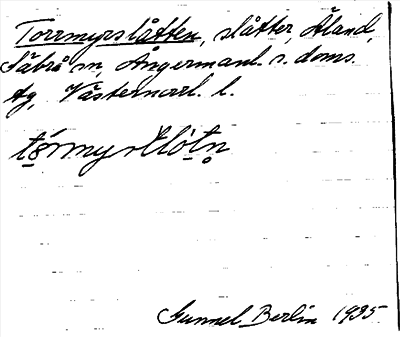 Torrmyrslåtten, slåtter, Åland,
Säbrå sn, Ångermanl. s. doms.
tg, Västernorrl. l.
Gunnel Berlin 1935.